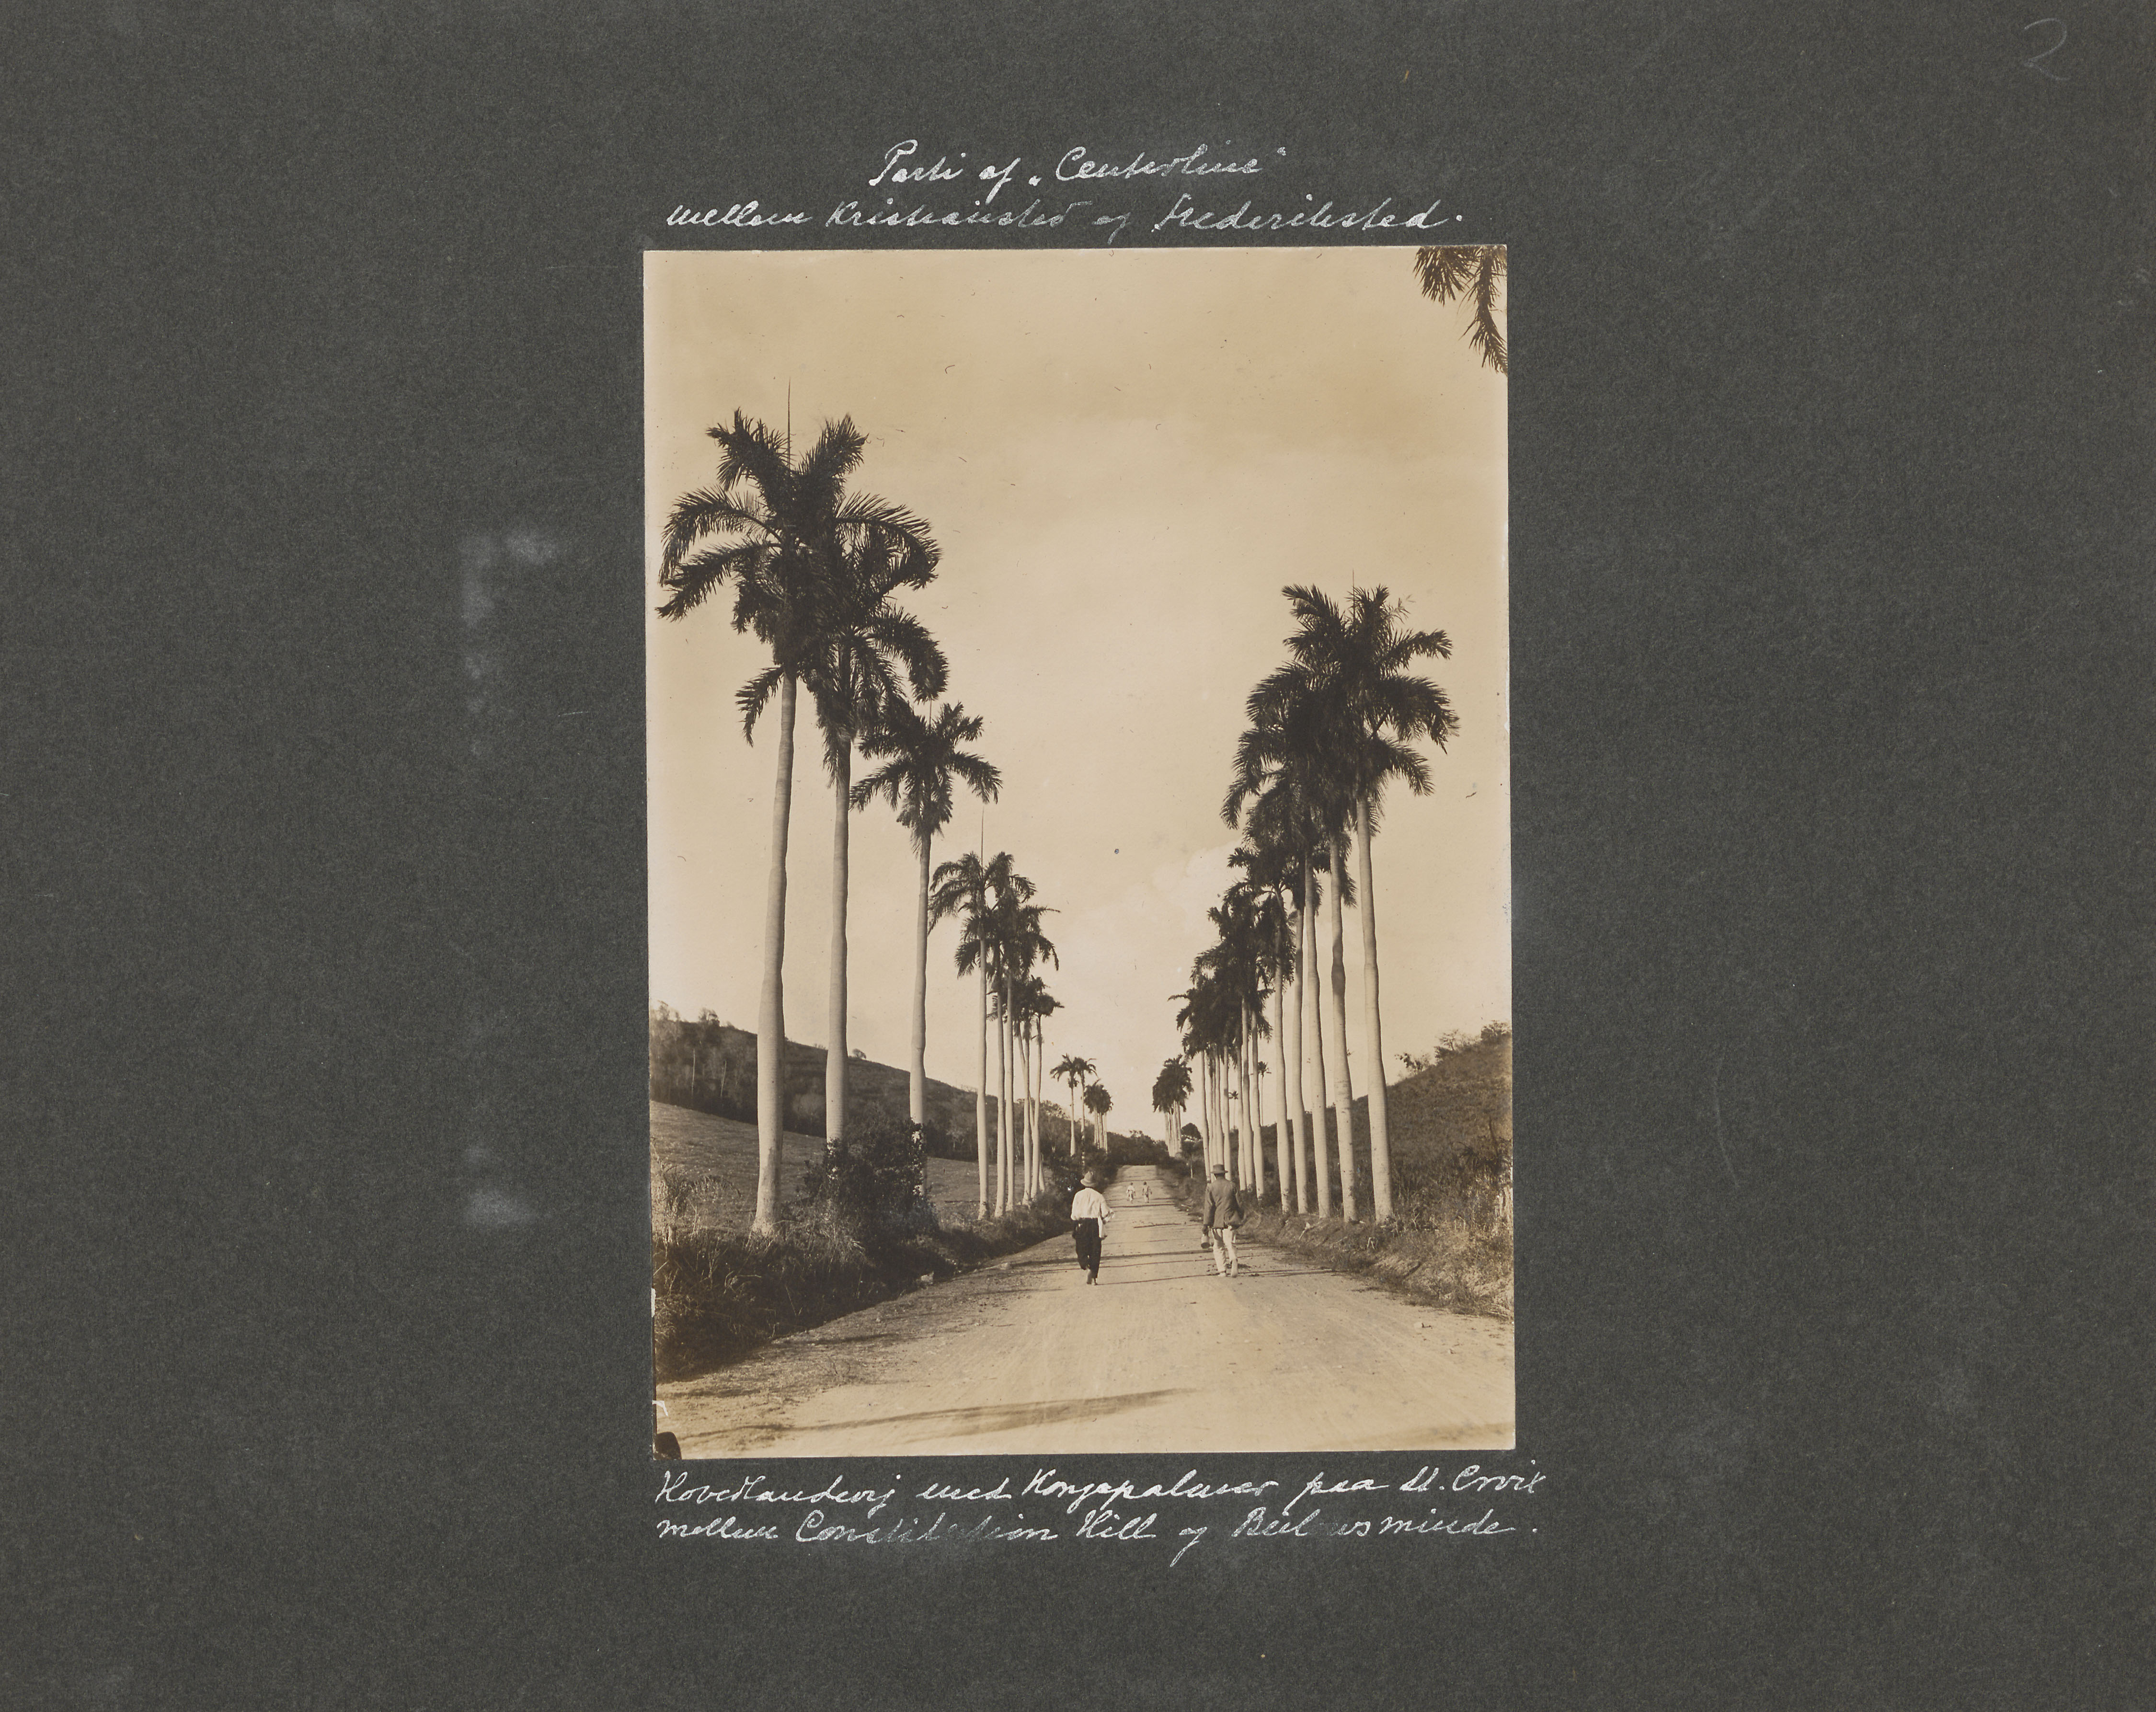 2
Parti af „Centerline“
mellem Kristiansted og Frederiksted.
Hovedlandevej med Kongepalmer paa St. Croix
mellem Constitution Hill og Bülowsminde.